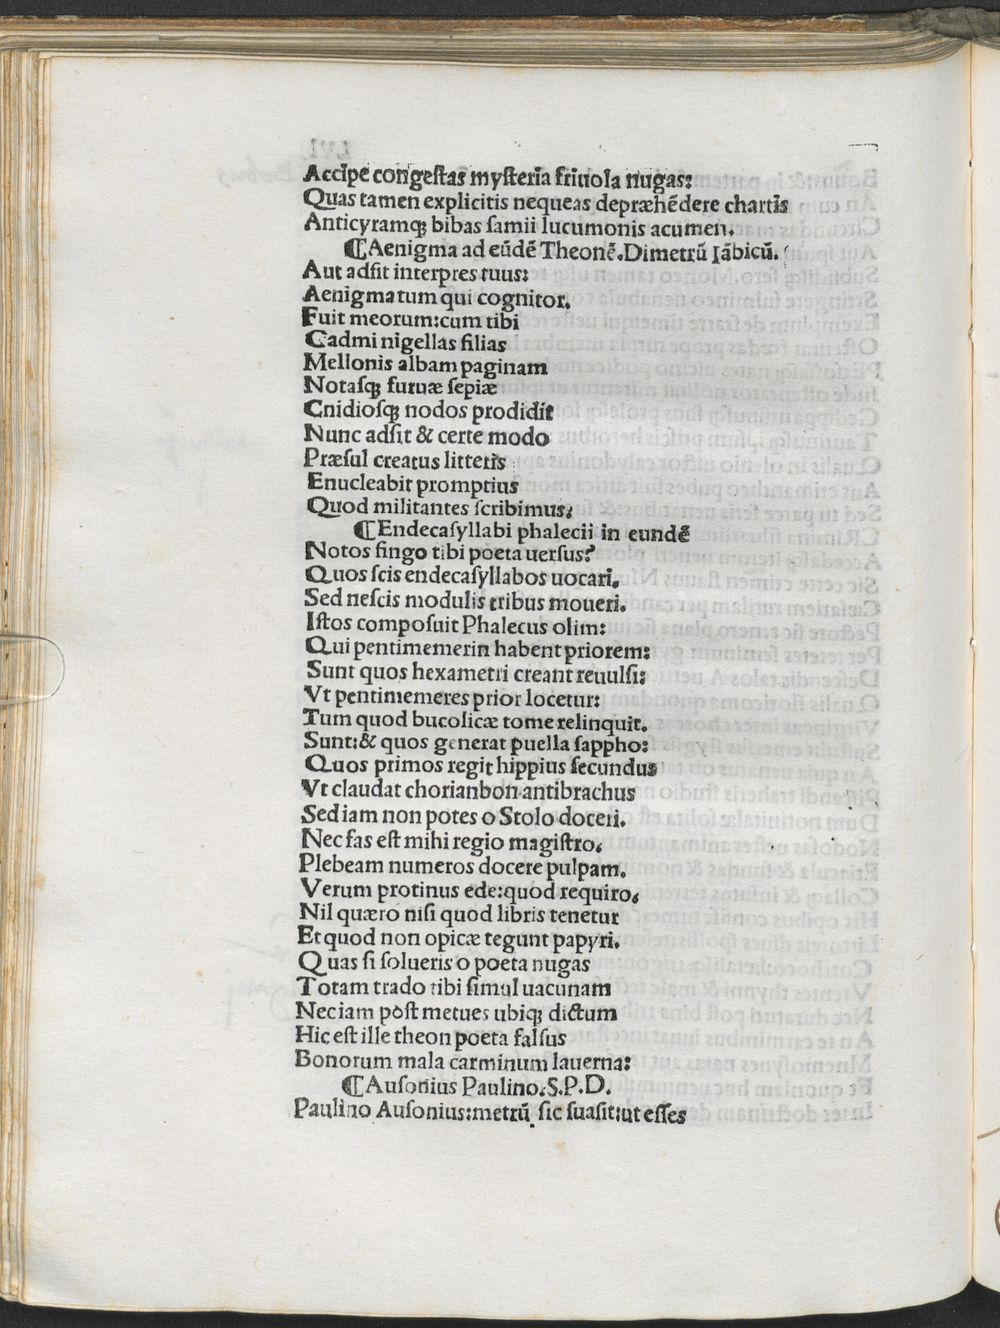 Accipe congestas mysteria friuola nugas:
Quas tamen explicitis nequeas depræhēdere chartis
Anticyramqꝫ bibas samii lucumonis acumen.
¶Aenigma ad eūdē Theonē.Dimetrū Iābicū.
Aut adsit interpres tuus:
Aenigmatum qui cognitor.
Fuit meorum:cum tibi
Cadmi nigellas filias
Mellonis albam paginam
Notasqꝫ furuæ sepiæ
Cnidiosqꝫ nodos prodidit
Nunc adsit & certe modo
Præsul creatus litteris
Enucleabit promptius
Quod militantes scribimus:
¶Endecasyllabi phalecii in eundē
Notos fingo tibi poeta uersus?
Quos scis endecasyllabos uocari.
Sed nescis modulis tribus moueri.
Istos composuit Phalecus olim:
Qui pentimemerin habent priorem:
Sunt quos hexametri creant reuulsi:
Vt pentimemeres prior locetur:
Tum quod bucolicæ tome relinquit.
Sunt:& quos generat puella sappho:
Quos primos regit hippius secundus
Vt claudat chorianbon antibrachus
Sed iam non potes o Stolo doceri.
Nec fas est mihi regio magistro.
Plebeam numeros docere pulpam.
Verum protinus ede:quod requiro.
Nil quæro nisi quod libris tenetur
Et quod non opicæ tegunt papyri.
Quas si solueris o poeta nugas
Totam trado tibi simul uacunam
Nec iam post metues ubiqꝫ dictum
Hic est ille theon poeta falsus
Bonorum mala carminum lauerna:
¶Ausonius Paulino.S.P.D.
Paulino Ausonius:metrū sic suasit:ut esses